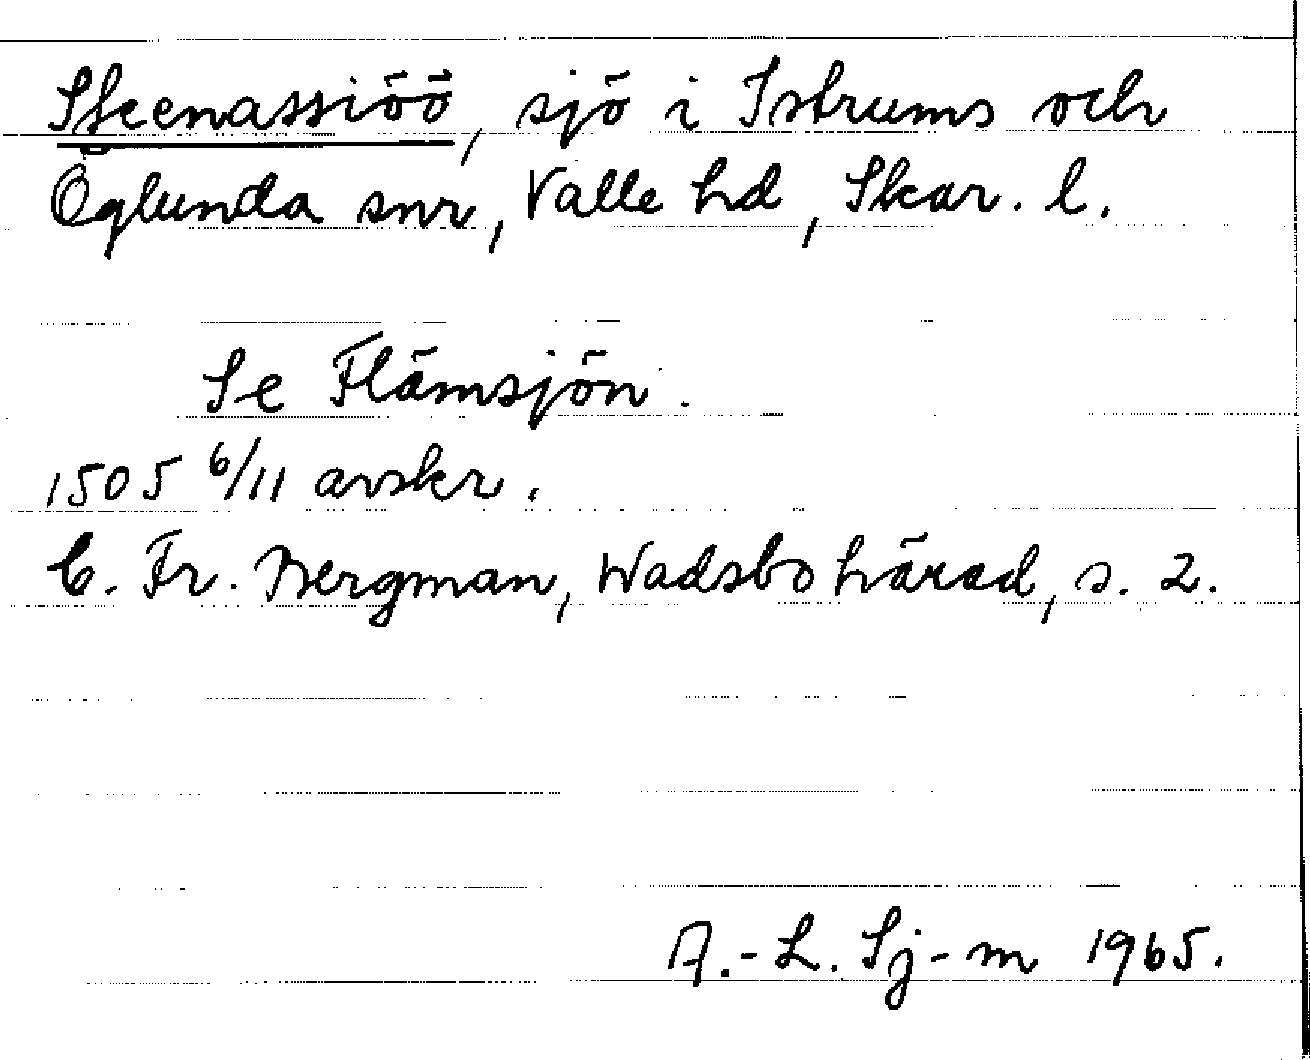 Skeenassiöö, sjö i Istrums och
Öglunda snr, Valle hd, Skar. l.
Se Flämsjön.
1505 6/11 avskr.
C. Fr. Bergman, Wadsbo härad, s. 2.
A.-L. Sj-m 1965.